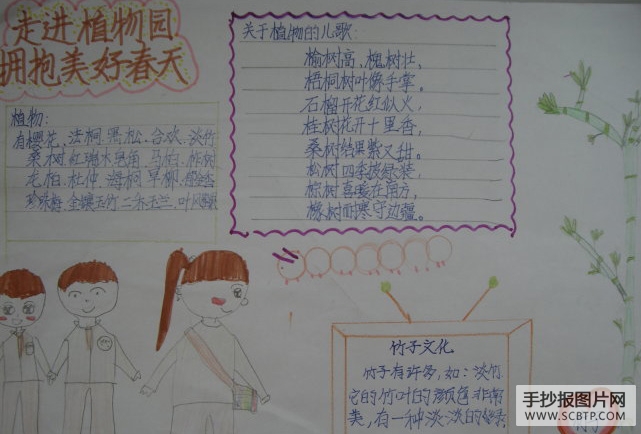 走进植物园
拥抱美好春天
植物:
有樱花、法桐、黑松、合欢、淡竹
桑树、红瑞木、皂角、马柏、柞树
龙柏、杜仲、海桐、旱柳、
珍珠梅、金镶玉竹、二乔玉兰、叶
关于植物的儿歌:
榆树高,槐树壮,
梧桐树叶像手掌。
石榴开花红似火,
桂树花开十里香,
桑树结果紫又甜。
松树四季披绿装,
棕树喜暖在南方,
橡树耐寒守边疆。
竹子文化
竹子有许多,如:淡竹
它的竹叶的颜色非常
美,有一种淡淡的绿
竹
手抄报图片网
WWW.SCBTP.COM